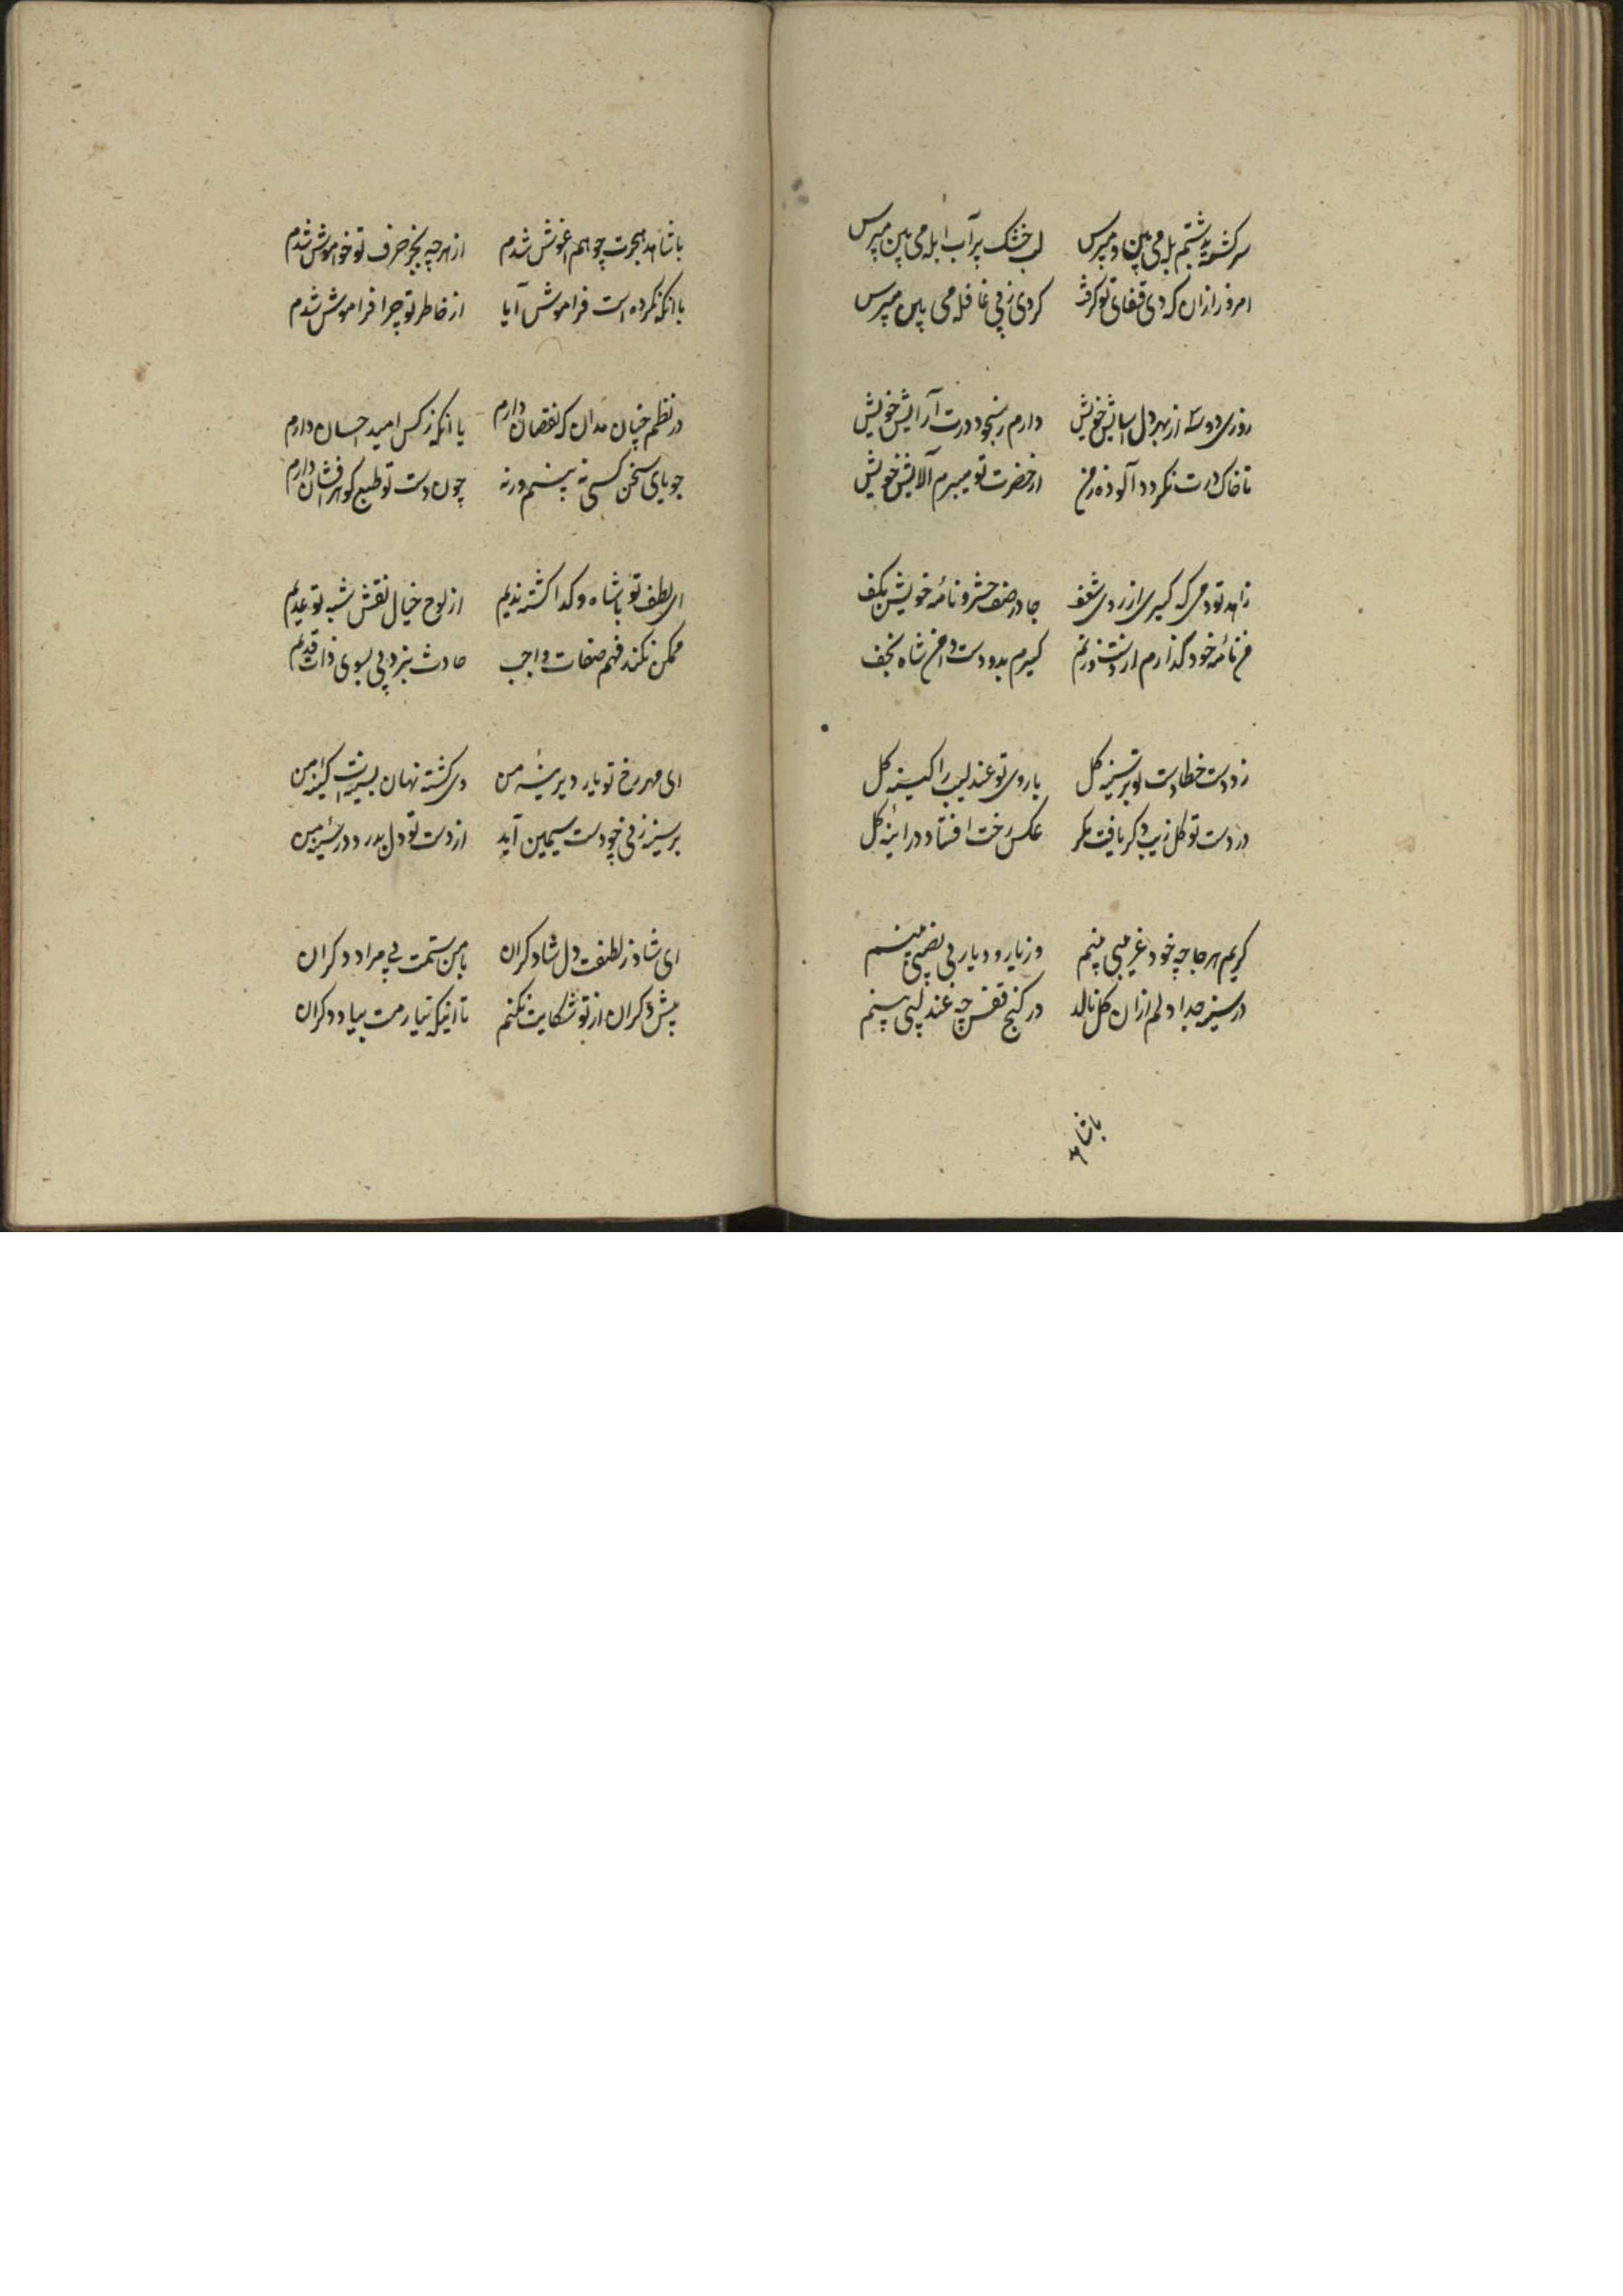 سرکشته بشتم بله می بین و مپرس لب خشک پر آب ابله می بین مپرس
امروز ازان که دی قفای تو گرفت کردی ز پی غافله می بین مپرس
روزی دو سه از بهر دل اسایش خویش دارم بسجود درت آرایش خویش
تا خاک درت نکردد آلوده ز من از حضرت تو میبرم آلایش خویش
زاهد تو دمی که کیری از روی شغف جا در صف حشر و نامه خویش بکف
من نامه خود گذارم از دست و زنم کیرم بدو دست دامن شاه نجف
زد دست خطا دست تو بر سینه کل با روی تو عندلیب را کینه کل
در دست تو کل زیب دکر یافت مکر عکس رخت افتاد در اینه کل
کریم هر جا چو خود غریبی بینم وز یار و دیار بی نصیبی بینم
در سینه جدا دلم ازان کل نالد در کنج قفس چه عندلیبی بینم
با شاهد
با شاهد هجرت چو هم اغوش شدم از هر چه بجز حرف تو خواموش شدم
با آنکه نکرده است فراموش آیا از خاطر تو چرا فراموش شدم
در نظم چنان مدان که نقصان دارم یا آنکه ز کس امید احسان دارم
جویای سخن کسی نه بینم ور نه چون دست تو طبع گوهر افشان دارم
ای لطف تو با شاه و کدا کشته ندیم از لوح خیال نقش شبه تو عدیم
ممکن نکند فهم صفات واجب حادث نبرد پی بسوی ذات قدیم
ای مهر رخ تو یار دیرینه من وی کشته نهان بسینه ات کینه من
بر سینه زنی چو دست سیمین آید از دست تو دل بدرد در سینه من
ای شاد ز لطفت دل ناشاد کران با من ستمت پی مراد دکران
پیش دکران از تو شکایت نکنم تا اینکه نیارمت بیاد دکران